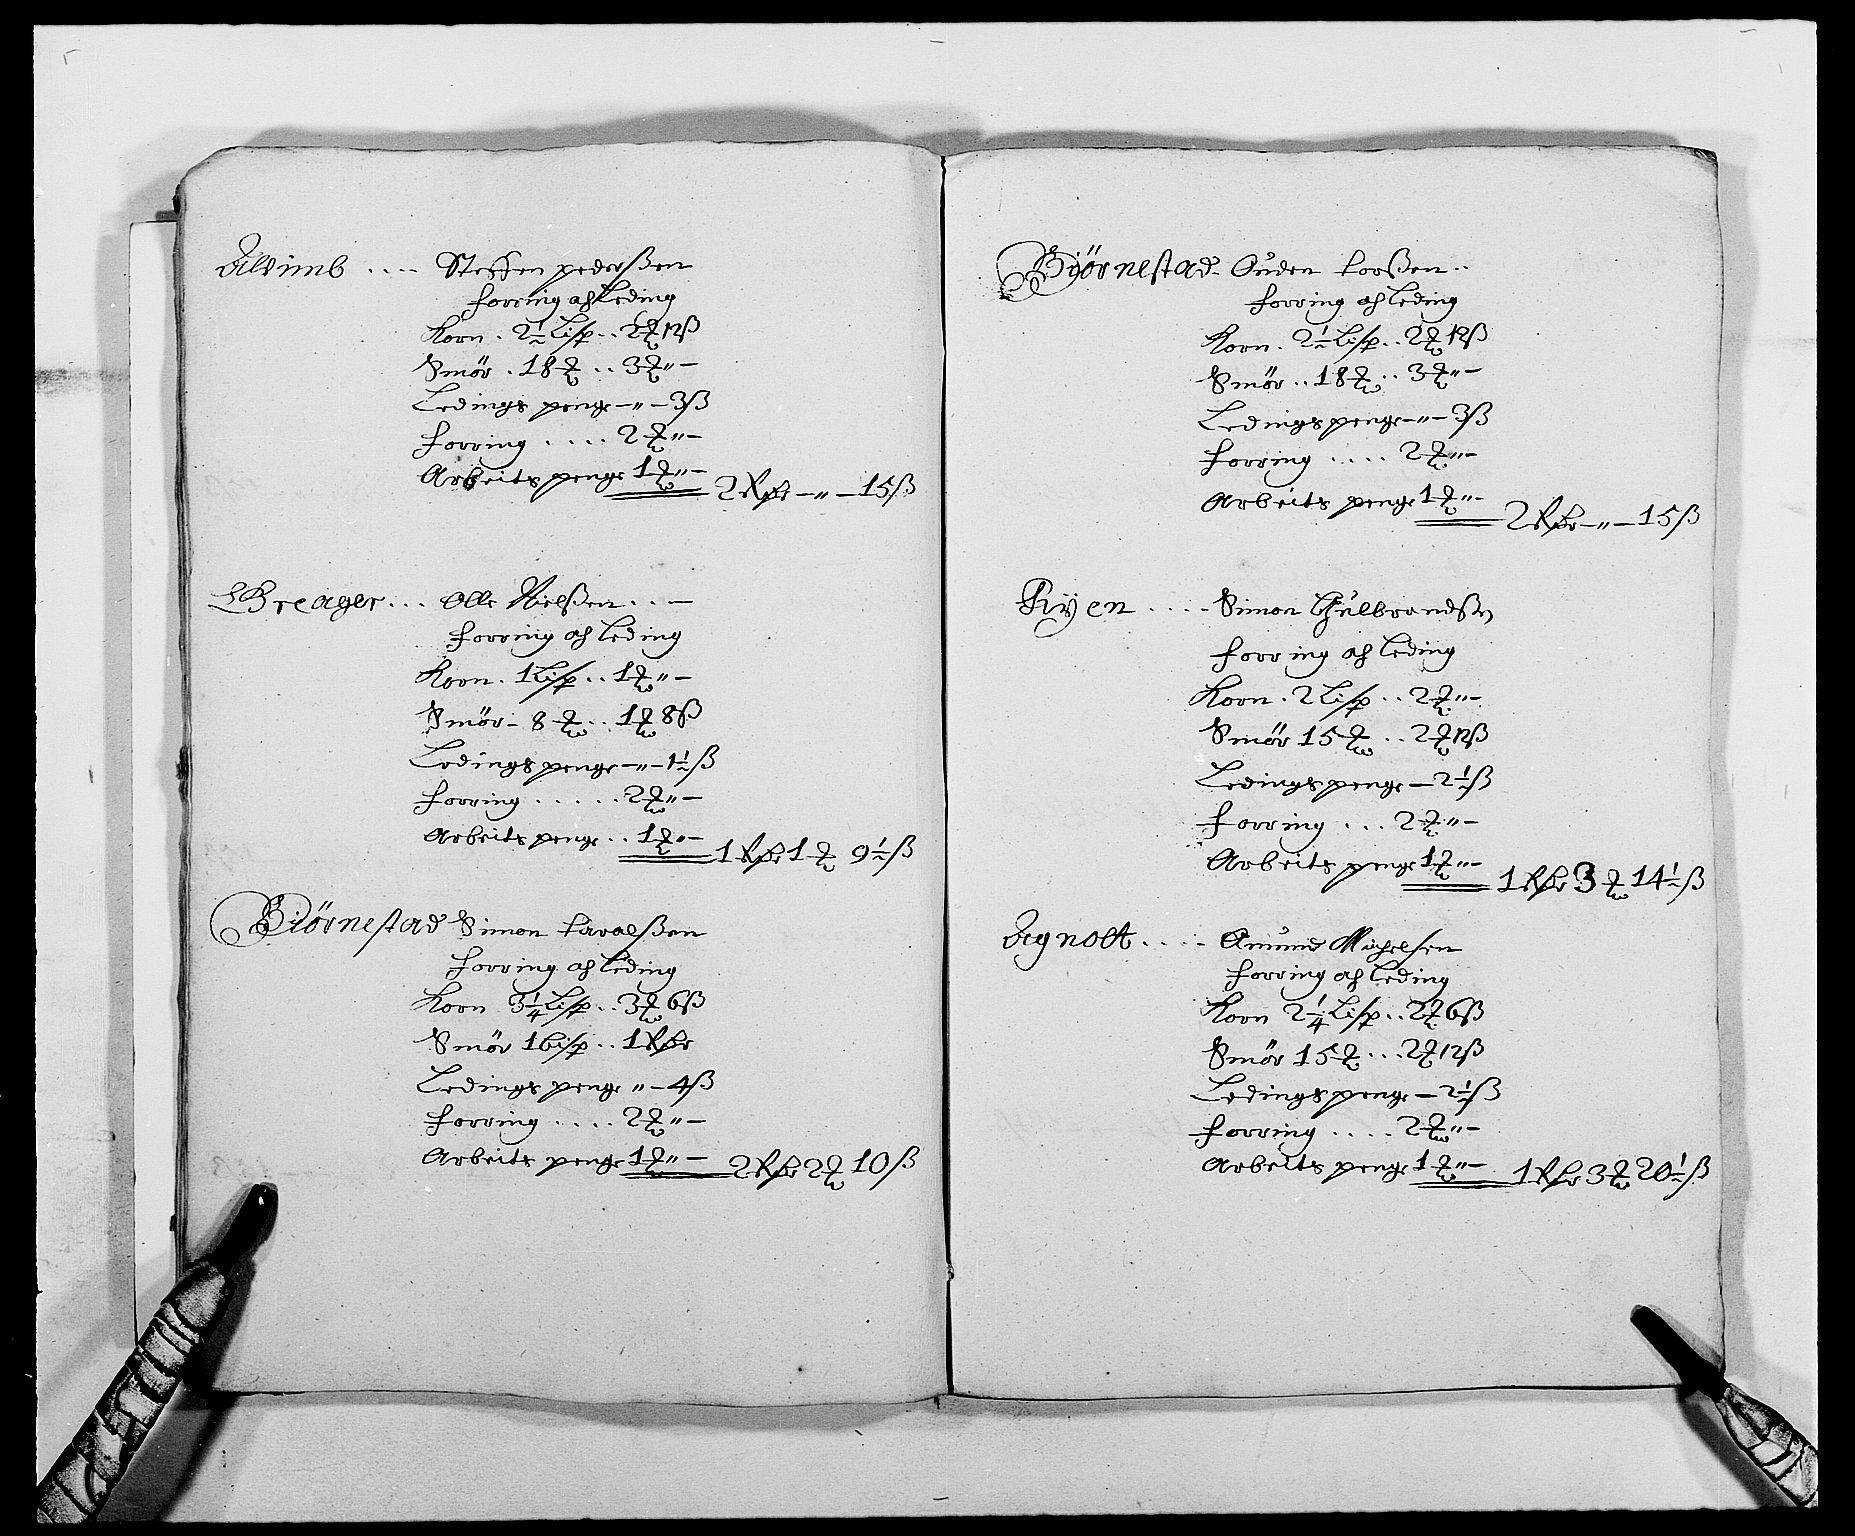 Alvimb .... Steffen pederßen
forring af Leding
Korn . 2½ Lisp .. 2 ℔ 12ß
Smör . 18 ℔ .. 3 ℔ " –
Ledings penge – " – 3ß
forring .... 2 ℔ " –
Arbeits penge 1 ℔ " – 2 Rdr – " – 15ß
Breager ... Olle Nielßen ... –
forring af Leding
Korn . 1 Lisp .. 1 ℔ " –
Smör – 8 ℔ .. 1 ℔ 8ß
Ledings penge – " – 1½ß
forring ..... 2 ℔ " –
Arbeits penge .. 1 ℔ " – 1 Rdr 1 ℔ 9½ß
Biörnestad Simon
forring af Leding
Korn 3¼ Lisp .. 3 ℔ 6ß
Smör 1 Bisp .. 1 Rdr
Ledings penge " – 4ß
forring .... 2 ℔ " –
Arbeits penge 1 ℔ " – 2 Rdr 2 ℔ 10ß
Biörnestad Ouden Lorßen ..
forring af Leding
Korn . 2½ Lisp .. 2 ℔ 12ß
Smör .. 18 ℔ .. 3 ℔ " –
Ledings penge – " – 3ß
forring .... 2 ℔ " –
Arbeits penge 1 ℔ " – 2 Rdr – " – 15ß
Ryen .... Simon Gulbrandß
forring af Leding
Korn . 2 Lisp .. 2 ℔ " –
Smör 15 ℔ .. 2 ℔ 12ß
Ledings penge – 2½ß
forring ... 2 ℔ " –
Arbeits penge 1 ℔ " – 1 Rdr 3 ℔ 14½ß
Agnolt .... Amund Michelsen
forring af Leding
Korn 2¼ Lisp .. 2 ℔ 6ß
Smör 15 ℔ ... 2 ℔ 12ß
Ledings penge – 2½ß
forring .... 2 ℔ " –
Arbeits penge 1 ℔ " – 1 Rdr 3 ℔ 20½ß